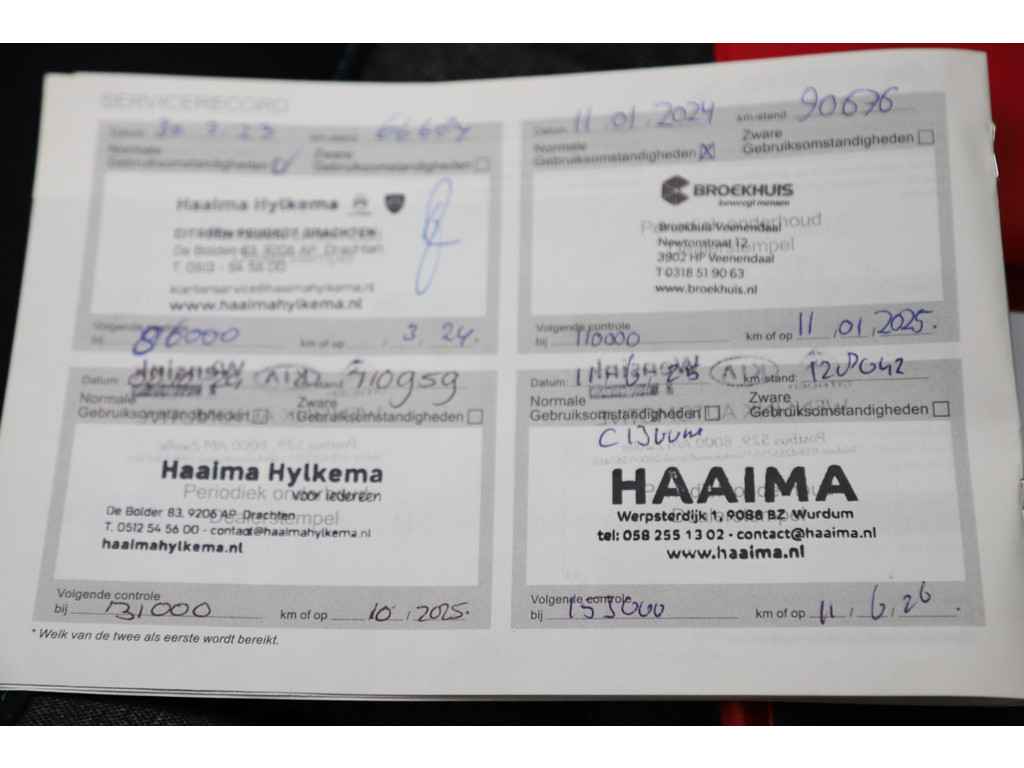 SERVICERECORD
Datum: 30.7.23 km-stand:
Normale
Gebruiksomstandigheden
Zware
Gebruiksomstandigheden
Haaima Hylkema
CITROËN PEUGEOT DRACHTEN
De Bolder 63, 9206 AP, Drachten
T. 0512 - 54 56 00
klantenservice@haaimahylkema.nl
www.haaimahylkema.nl
Volgende controle
bij 86000 km of op 3.24.
Datum: 11.01.2024 km-stand: 90676
Normale
Gebruiksomstandigheden
Zware
Gebruiksomstandigheden
BROEKHUIS
beweegt mensen
Periodiek onderhoud
Dealerstempel
Broekhuis Veenendaal
Newtonstraat 12
3902 HP Veenendaal
T 0318 51 90 63
www.broekhuis.nl
Volgende controle
bij 110000 km of op 11.01.2025.
Datum: km-stand: 110959
Normale
Gebruiksomstandigheden
Zware
Gebruiksomstandigheden
Haaima Hylkema
voor iedereen
Periodiek onderhoud
Dealerstempel
De Bolder 83, 9206 AP, Drachten
T. 0512 54 56 00 - contact@haaimahylkema.nl
haaimahylkema.nl
Volgende controle
bij 131000 km of op 10.2025.
Datum: km-stand:
Normale
Gebruiksomstandigheden
Zware
Gebruiksomstandigheden
HAAIMA
Werpsterdijk 1, 9088 BZ Wurdum
tel: 058 255 13 02 - contact@haaima.nl
www.haaima.nl
Volgende controle
bij 153000 km of op 11.6.26.
* Welk van de twee als eerste wordt bereikt.